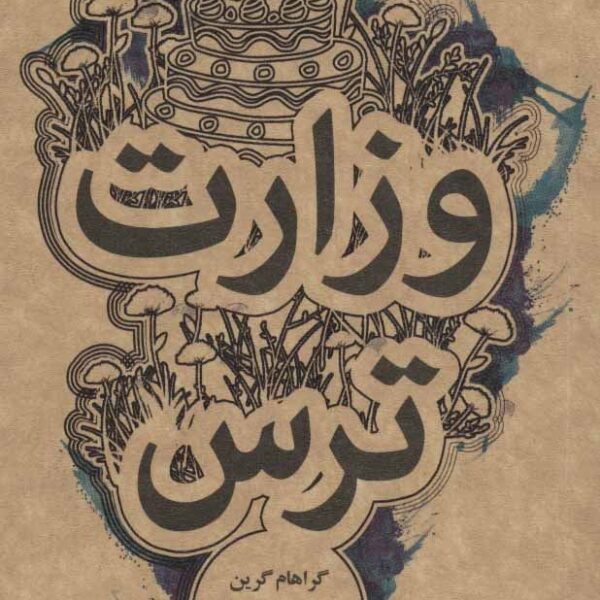 وزارت
ترس
گراهام گرین